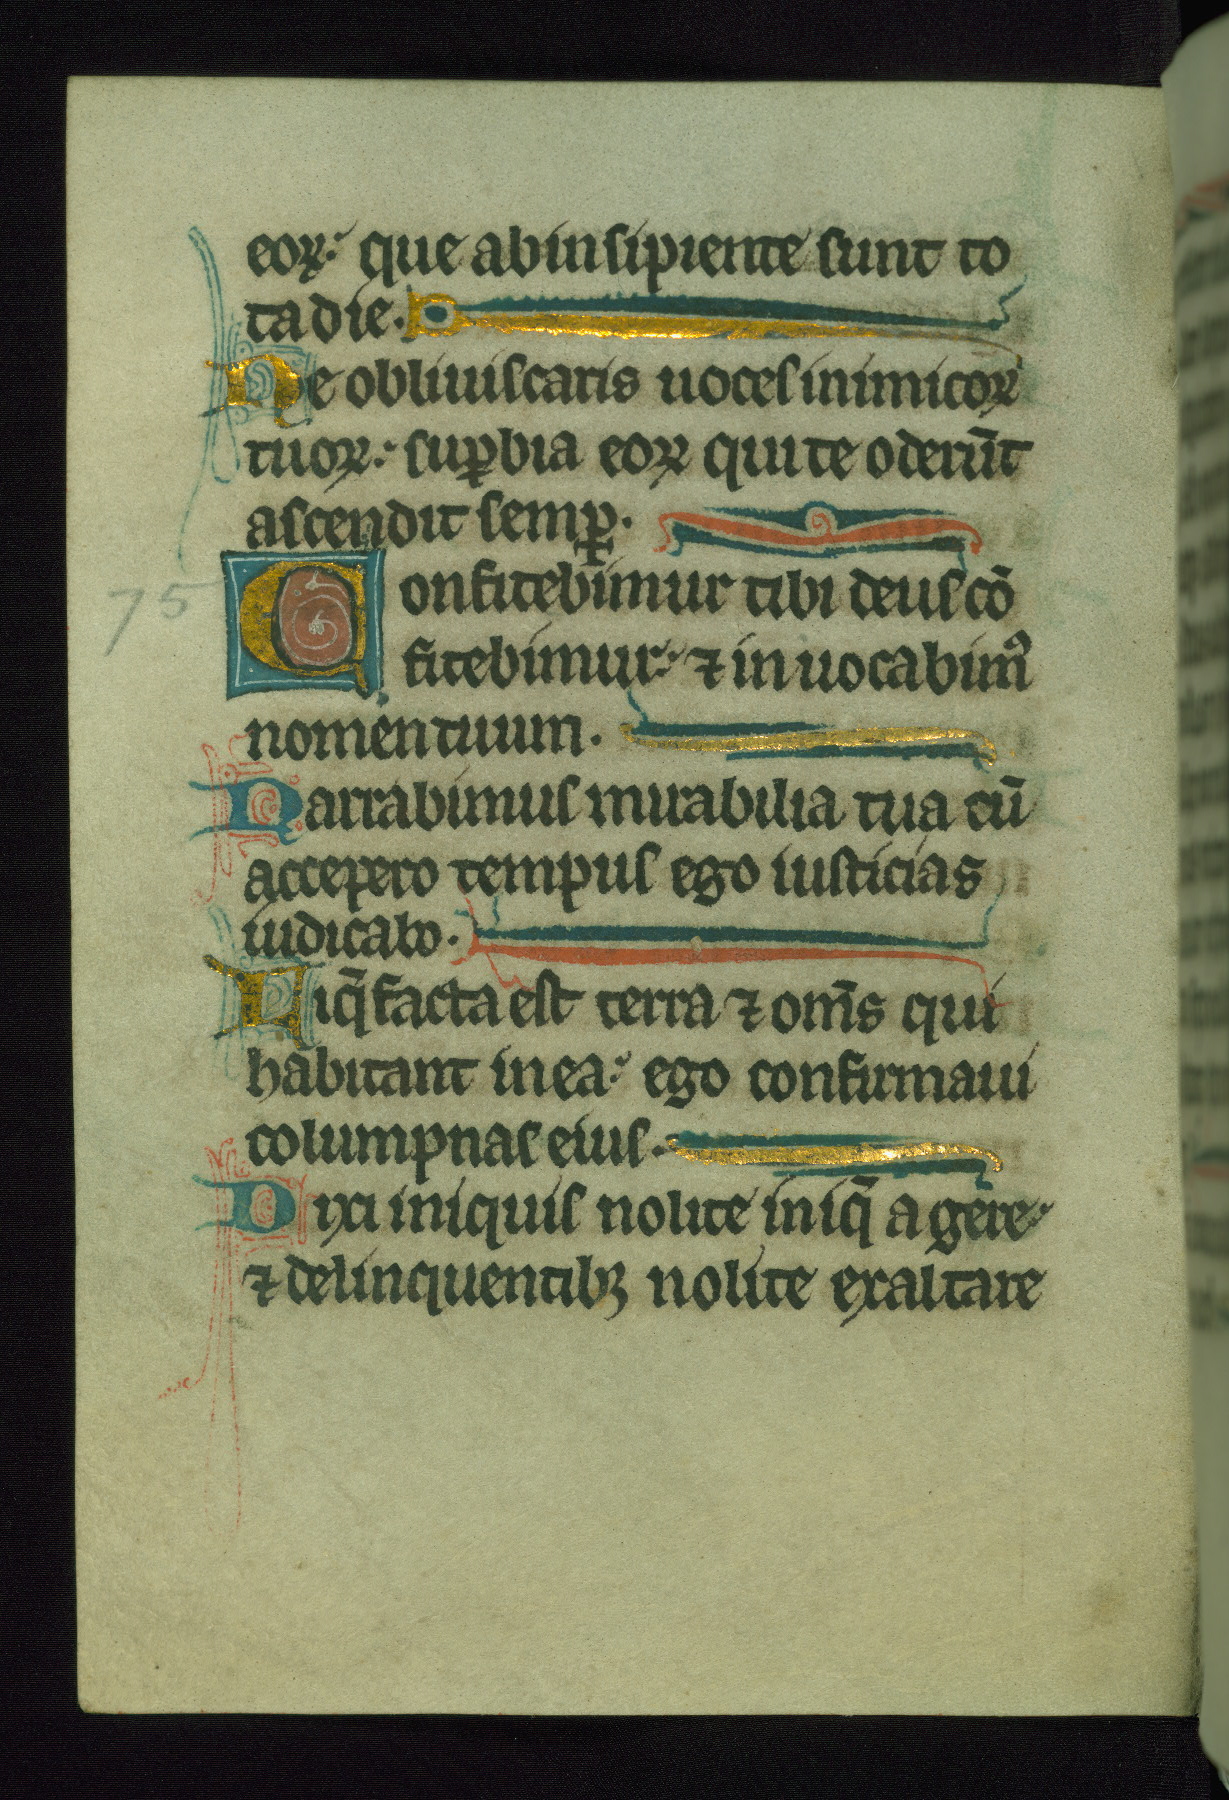 eoꝝ: que ab insipiente sunt to
ta die.
Ne obliuiscaris uoces inimicoꝝ
tuoꝝ: suꝑbia eoꝝ qui te oderūt
ascendit semꝑ.
75
Confitebimur tibi deus cō
fitebimur: ⁊ inuocabimꝰ
nomen tuum.
Narrabimus mirabilia tua cū
accepero tempus ego iusticias
iudicabo.
Liq̄facta est terra ⁊ om̄s qui
habitant in ea: ego confirmaui
columpnas eius.
Dixi iniquis nolite iniq̄ agere:
⁊ delinquentibꝫ nolite exaltare